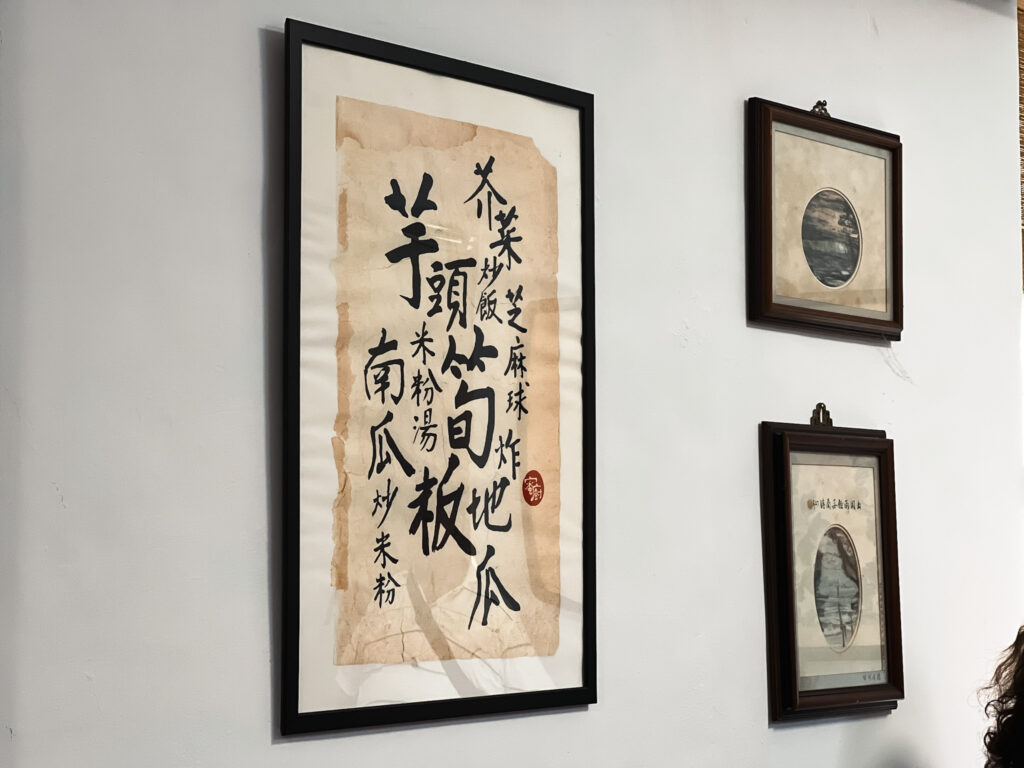 芥菜炒飯
芝麻球
炸地瓜
筍板
芋頭米粉湯
南瓜炒米粉